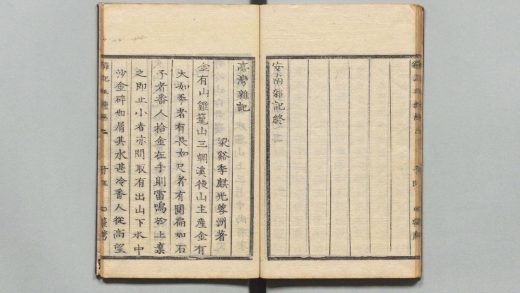 安南雜記終
臺灣雜記
梁谿季麒光蓉洲著
金有山雞籠山三朝溪後山主產金有
大如拳者有長如尺者有圓扁如石
子者番人拾金在手則雷鳴於上棄
之即止小者亦間取有出山下水中
沙金碎如屑其水甚冷番人從高望